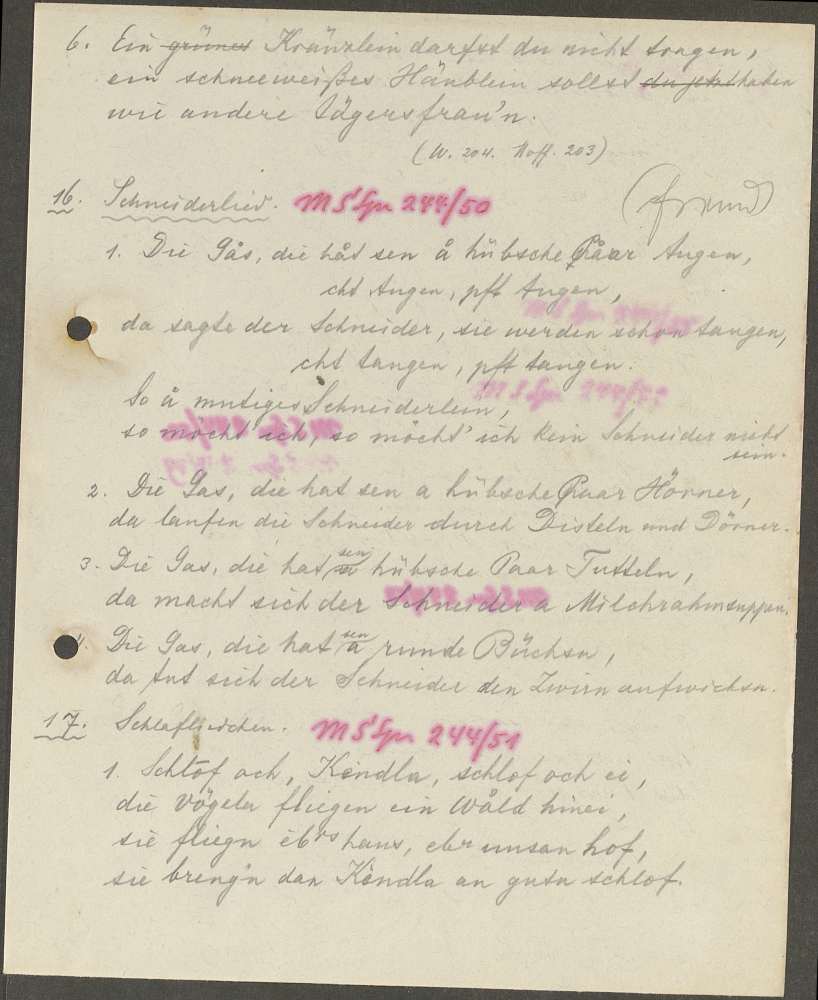 6. Ein grünes Kränzlein darfst du nicht tragen,
ein schneeweißes Häublein sollst du jetzt haben
wie andere Jägersfrau'n.
(W. 204. Hoff. 203)
16. Schneiderlied. MS'Spr 244/50
1. Die Gås, die håt sen å hübsche Påar Augen,
cht Augen, pft Augen,
da sagte der Schneider, sie werden schon taugen,
cht taugen, pft taugen.
So å mutiges Schneiderlein,
so möcht' ich, so möcht' ich kein Schneider nicht
sein.
2. Die Gas, die hat sen a hübsche Paar Hörner,
da laufen die Schneider durch Disteln und Dörner.
3. Die Gas, die hat sen a hübsche Paar Tutteln,
da macht sich der Schneider a Milchrahmsuppen.
4. Die Gas, die hat sen a runde Büchsn,
da tut sich der Schneider den Zwirn aufwichsn.
17. Schlafliedchen. MS'Spr 244/51
1. Schlof och, Kendla, schlof och ei,
die Vögela fliegen ein Wåld hinei,
sie fliegn ebrs haus, ebr unsan hof,
sie breng'n dan Kendla an gutn schlof.